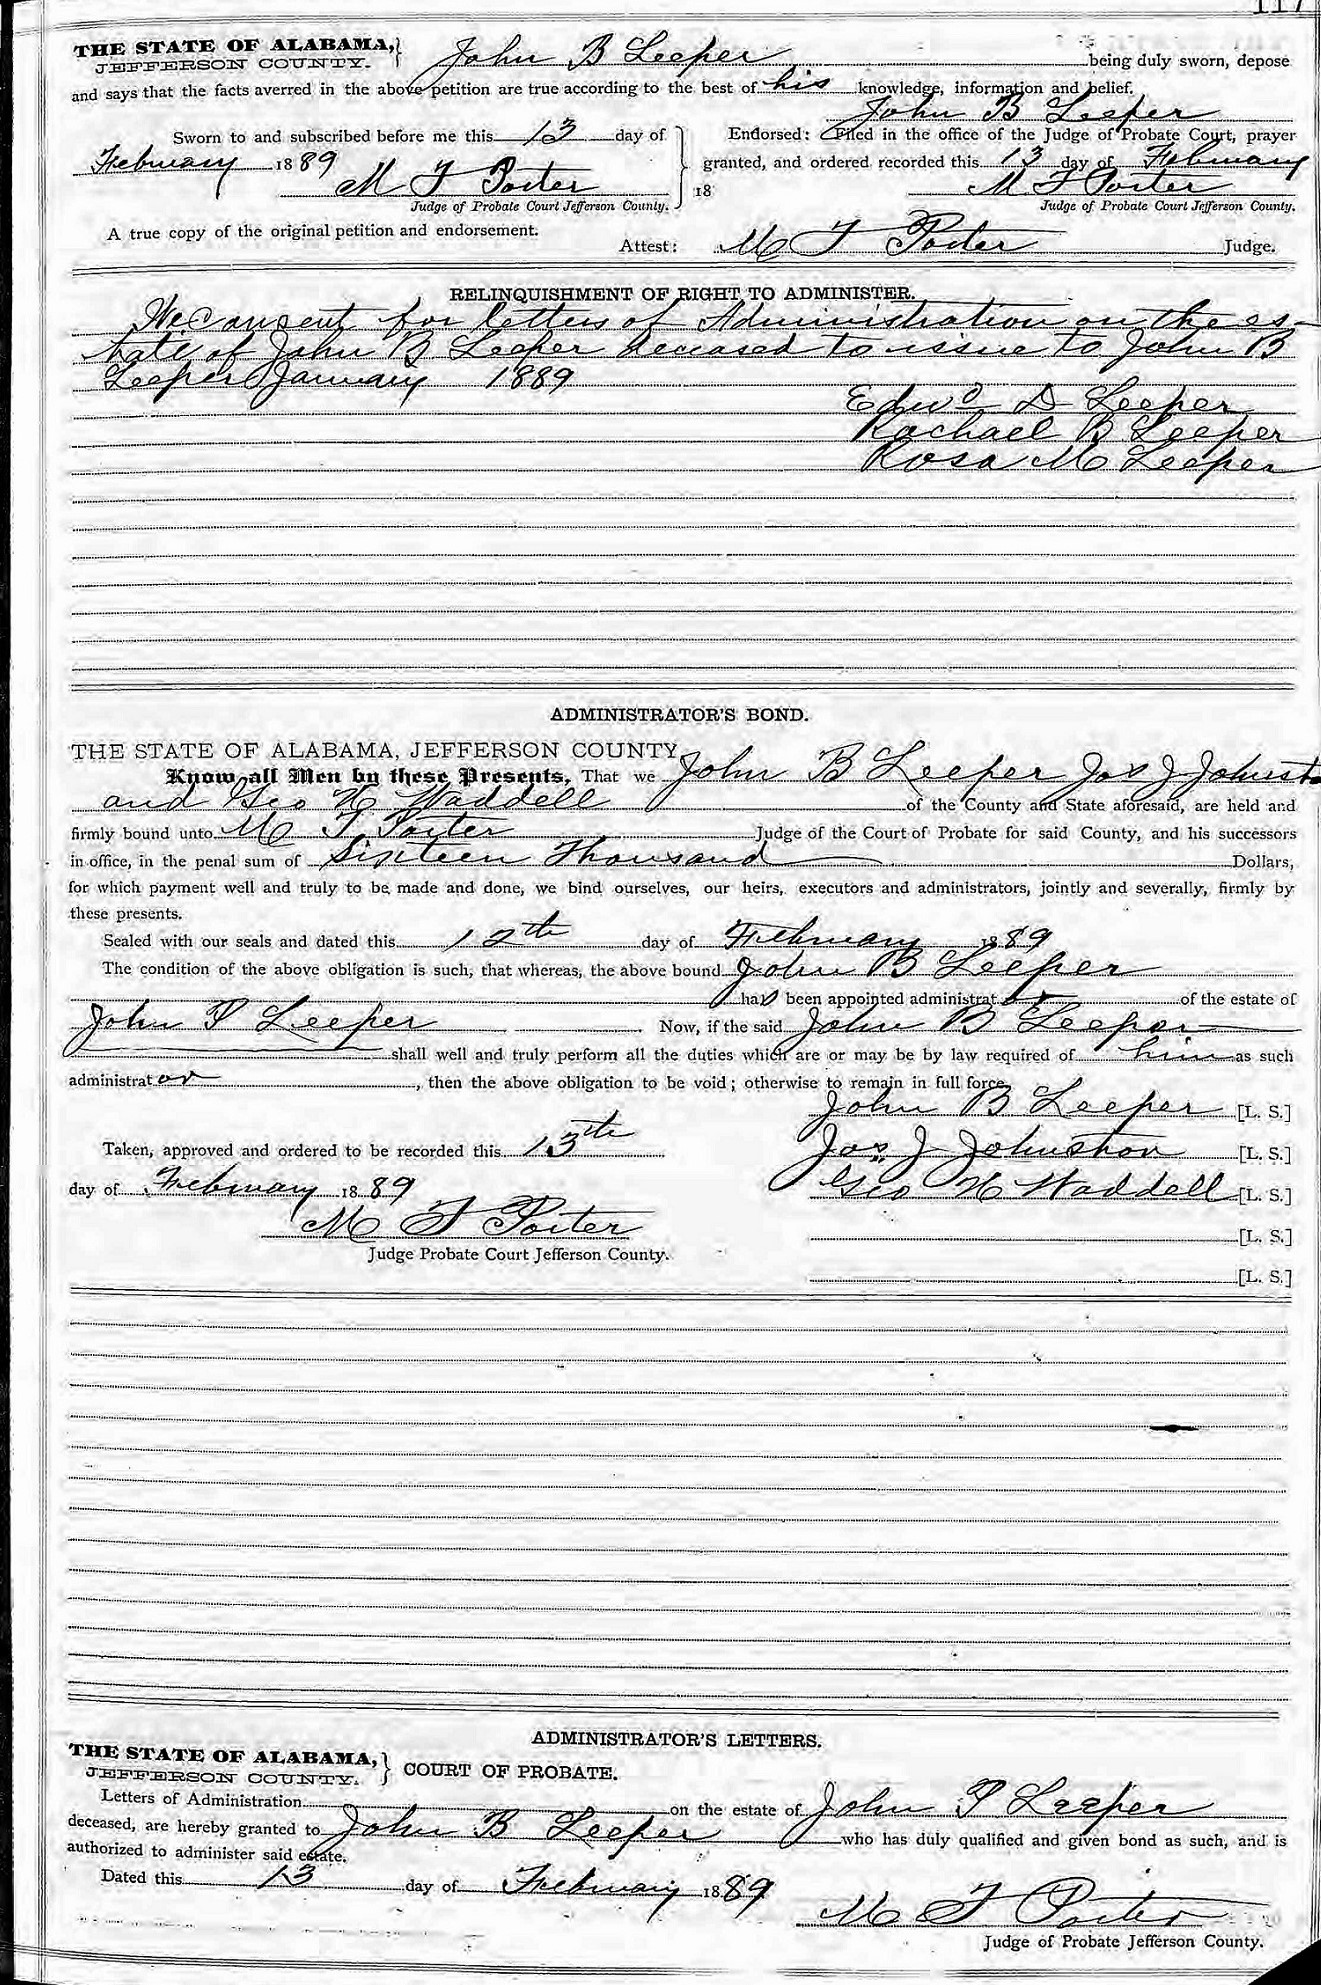 117
THE STATE OF ALABAMA, } John B Leeper being duly sworn, depose
JEFFERSON COUNTY.
and says that the facts averred in the above petition are true according to the best of his knowledge, information and belief.
John B Leeper
Sworn to and subscribed before me this 13 day of
February 1889
M T Porter
Judge of Probate Court Jefferson County.
Endorsed: Filed in the office of the Judge of Probate Court, prayer
granted, and ordered recorded this 13 day of February
18 M T Porter
Judge of Probate Court Jefferson County.
A true copy of the original petition and endorsement.
Attest: M T Porter Judge.
RELINQUISHMENT OF RIGHT TO ADMINISTER.
We consent for letters of Administration on the es-
tate of John B Leeper deceased to issue to John B
Leeper January 1889
Edwd D Leeper
Rachael B Leeper
Rosa M Leeper
ADMINISTRATOR'S BOND.
THE STATE OF ALABAMA, JEFFERSON COUNTY
Know all Men by these Presents, That we John B Leeper Jos J Johnsto
and Geo H Waddell of the County and State aforesaid, are held and
firmly bound unto M T Porter Judge of the Court of Probate for said County, and his successors
in office, in the penal sum of Sixteen Thousand Dollars,
for which payment well and truly to be made and done, we bind ourselves, our heirs, executors and administrators, jointly and severally, firmly by
these presents.
Sealed with our seals and dated this 12th day of February 1889
The condition of the above obligation is such, that whereas, the above bound John B Leeper
has been appointed administrator of the estate of
John P Leeper Now, if the said John B Leeper
shall well and truly perform all the duties which are or may be by law required of him as such
administrator, then the above obligation to be void; otherwise to remain in full force
John B Leeper [L. S.]
Taken, approved and ordered to be recorded this 13th
Jos J Johnston [L. S.]
day of February 1889
Geo H Waddell [L. S.]
M T Porter
[L. S.]
Judge Probate Court Jefferson County.
[L. S.]
ADMINISTRATOR'S LETTERS.
THE STATE OF ALABAMA, } COURT OF PROBATE.
JEFFERSON COUNTY.
Letters of Administration on the estate of John P Leeper
deceased, are hereby granted to John B Leeper who has duly qualified and given bond as such, and is
authorized to administer said estate.
Dated this 13 day of February 1889
M T Porter
Judge of Probate Jefferson County.